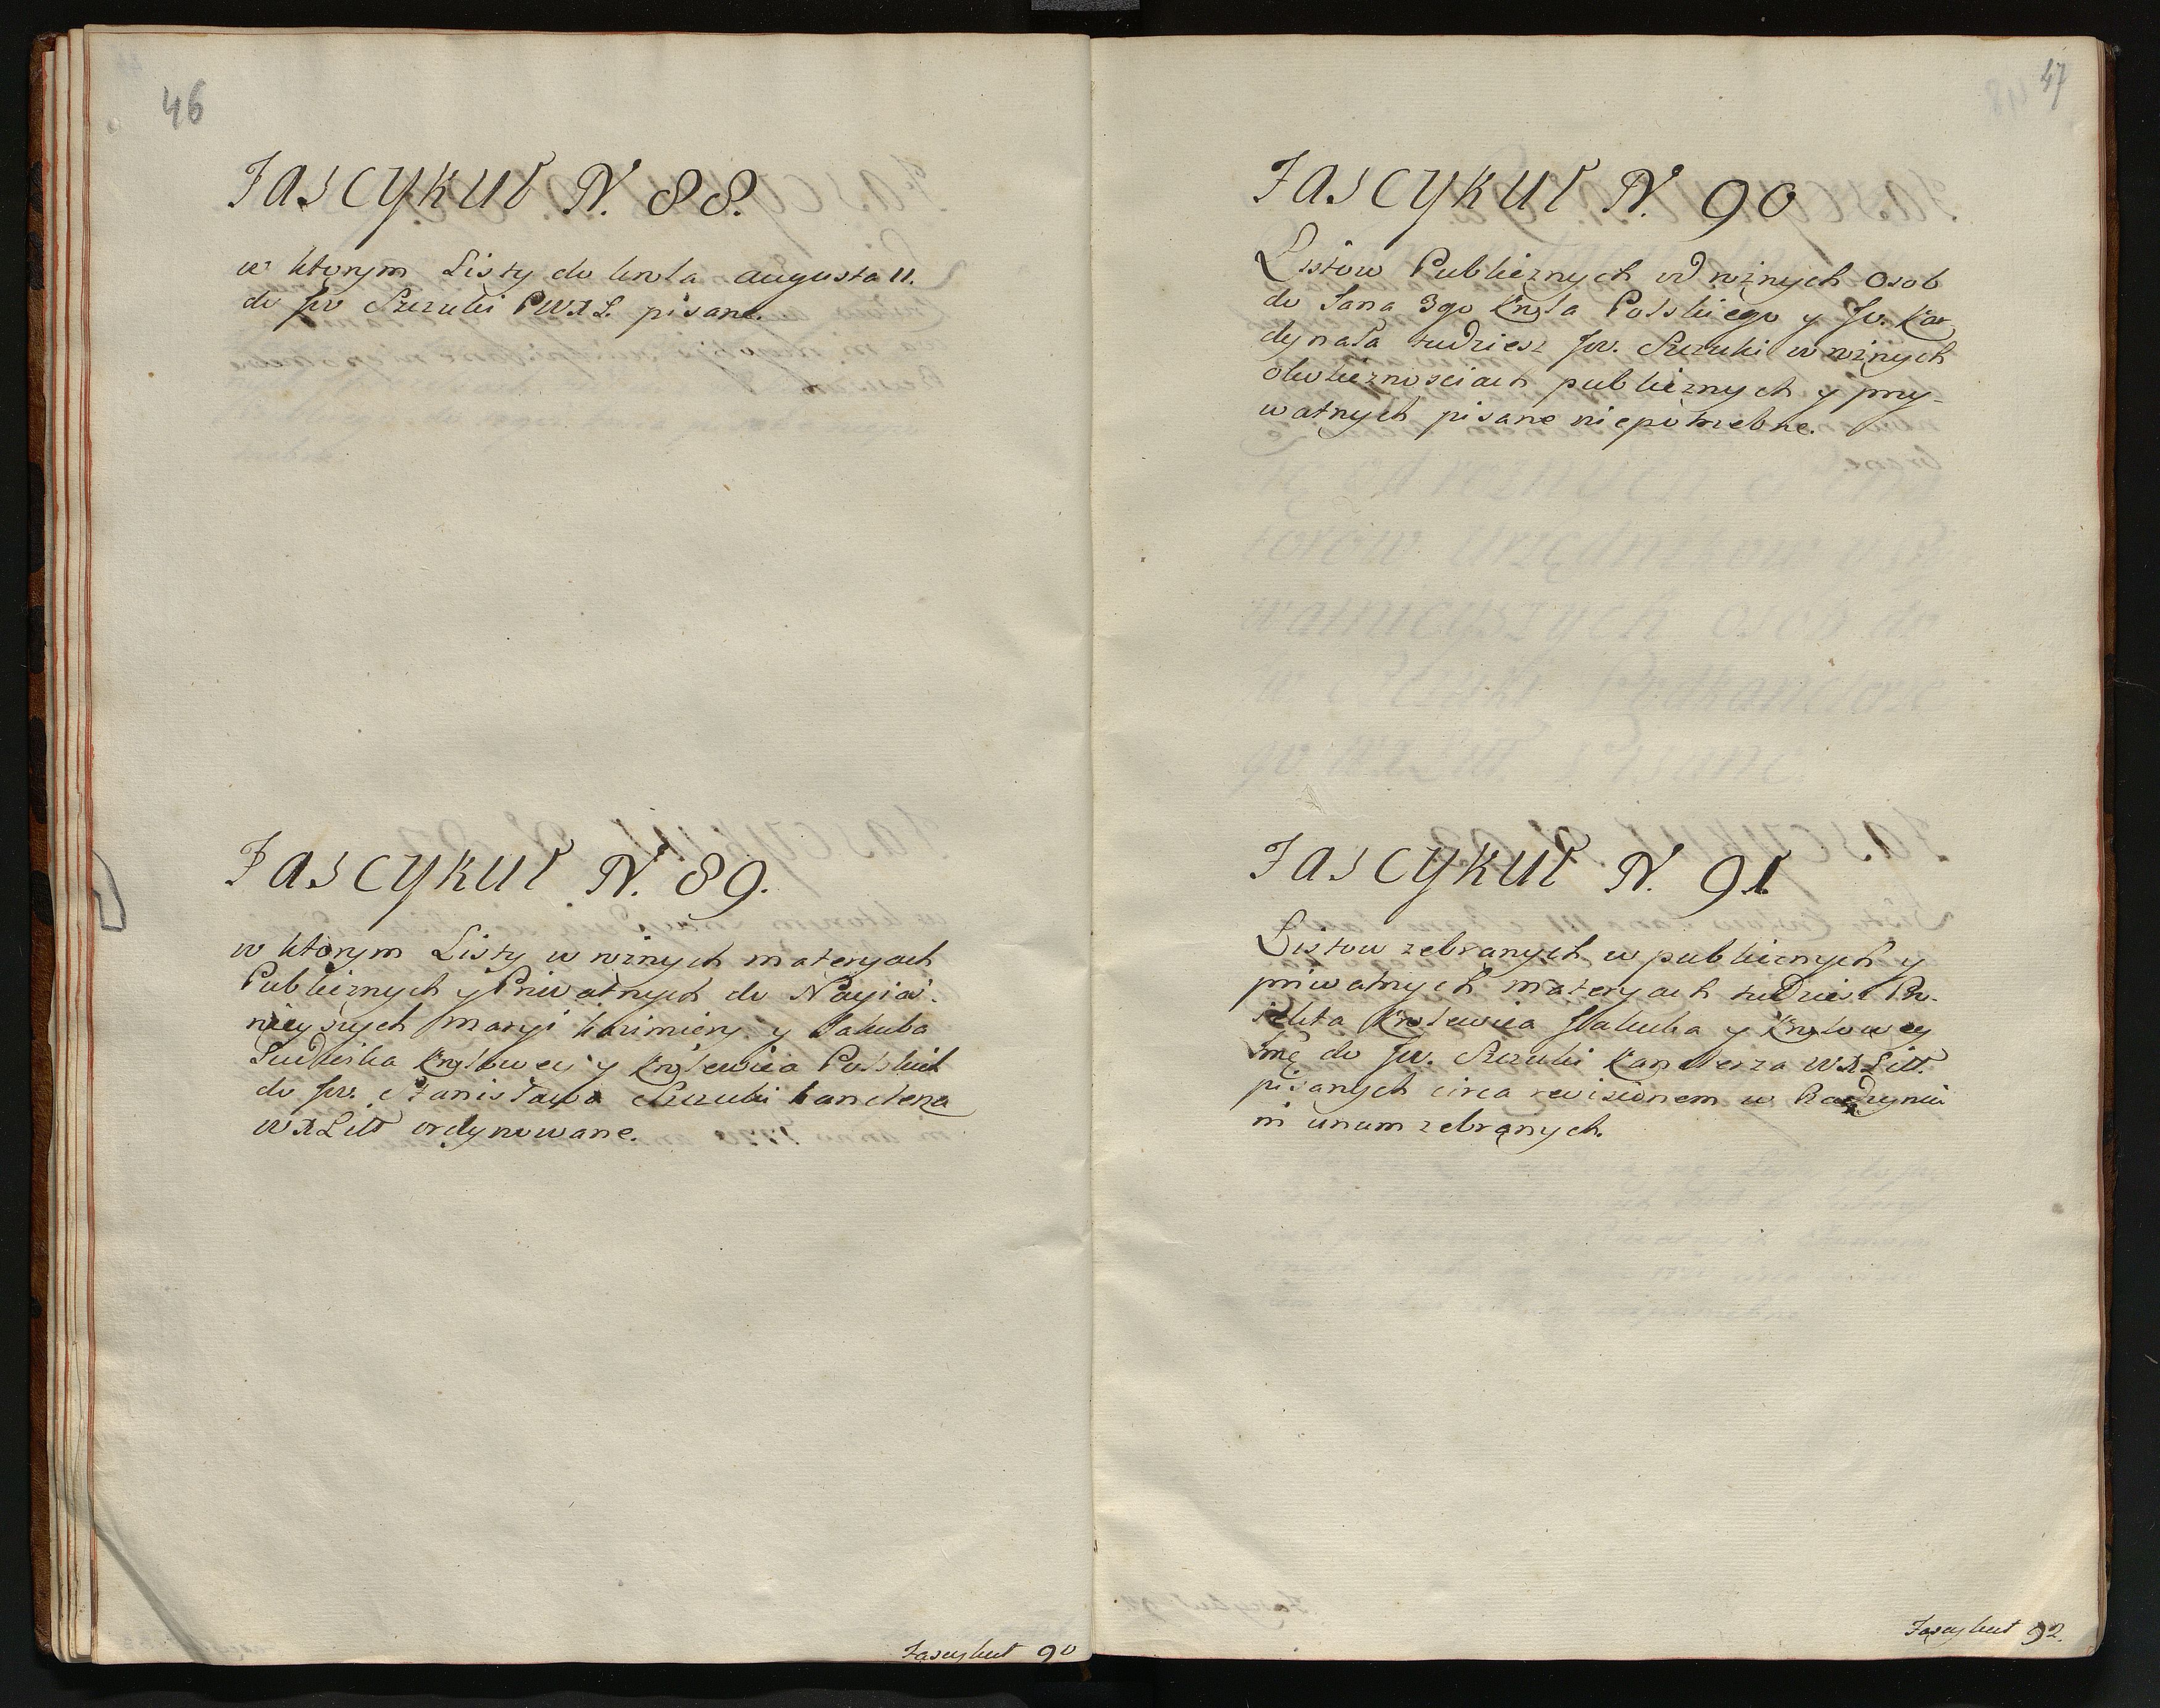 46
Fascykuł N. 88.
w ktorym Listy do krola Augusta II.
do Jw Szczuki PWXL. pisane.
Fascykuł N. 89.
w ktorym Listy w rożnych materyach
Publicznych y Priwatnych do Nayiaś.
nieyszych Maryi Kazimiery y Jakuba
Ludwika Krolowey y Krolewica Polskich
do Jw. Stanisława Szczuki kanclerza
WXLitt ordynowane.
Fascykuł 90
47
Fascykuł N. 90
Listow Publicznych od rożnych Osob
do Jana 3go Krola Polskiego y Jw. Kar
dynała tudziesz Jw. Szczuki w rożnych
okolicznosciach publicznych y pry-
watnych pisane niepotrzebne.
Fascykuł N. 91.
Listow zebranych w publicznych y
priwatnych materyach tudziesz
Krolewica Jakuba y Krolowey
Jmę do Jw. Szczuki Kanclerza WXLitt.
pisanych circa revisionem w Radzyniu
in unum zebranych.
Fascykuł 92.